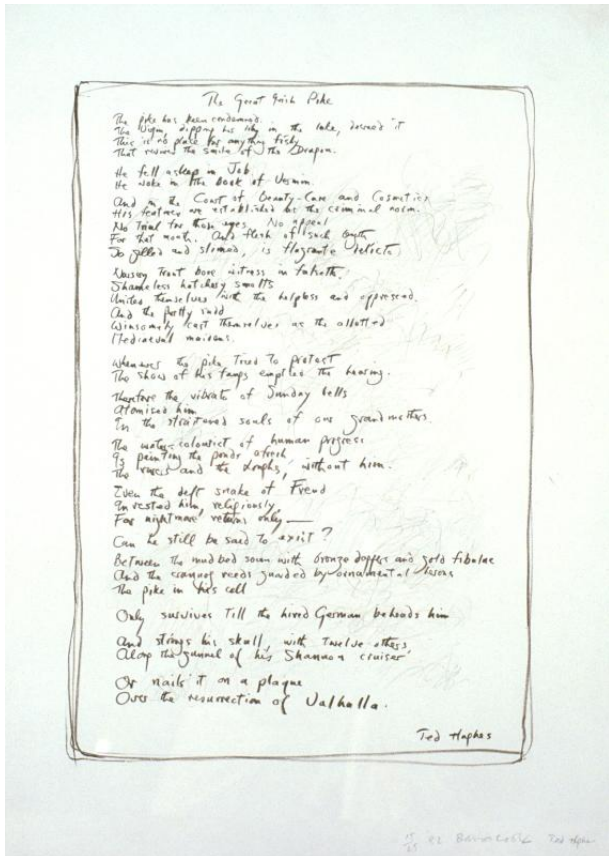 The Great Irish Pike
The pike has been condemned.
The Virgin, dipping her lily in the lake, decreed it
This is no place for anything fishy
That revives the smile of the Dragon.
He fell asleep in Job,
He woke in the Book of
And in the Court of Beauty-Care and Cosmetics
His features are established as the criminal norm.
No trial for those eyes. No appeal
For that mouth. And flesh of such length
So gilled and slimed, is flagrante delicto
Nursery trout bore witness in falsetto.
Shameless hatchery smolts
United themselves with the helpless and oppressed.
And the pretty rudd
Winsomely cast themselves as the allotted
Mediaeval maidens.
Whenever the pike tried to protest
The show of his fangs emptied the hearing.
Therefore the vibrato of Sunday bells
Atomised him
In the strictured souls of our grandmothers
The water-colourist of human progress
Is painting the ponds afresh,
The rivers and the loughs, without him.
Even the deft snake of Freud
Invested him, religiously,
For nightmare returns only —
Can he still be said to exist?
Between the mudbed sown with bronze daggers and gold fibulae
And the crannog reeds guarded by ornamental
The pike in his cell
Only survives till the hired German beheads him
And strings his skull, with twelve others,
Along the gunnel of his Shannon cruiser,
Or nails it on a plaque
Over the resurrection of Valhalla.
Ted Hughes
15/25 Ted Hughes